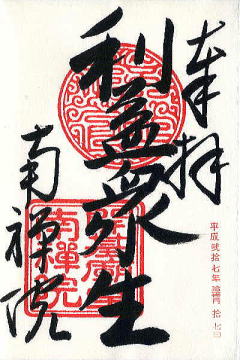 奉拝
平成弐拾七年
拾七日
利益衆生
南禅院
南禅院